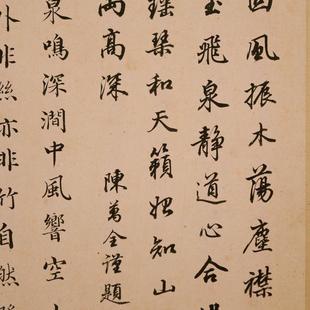 回風振木蕩塵襟
玉飛泉靜道心合
瑤琴和天籟始知山
兩高深
陳萬全謹題
泉鳴深澗中風響空
外非絲亦非竹自然